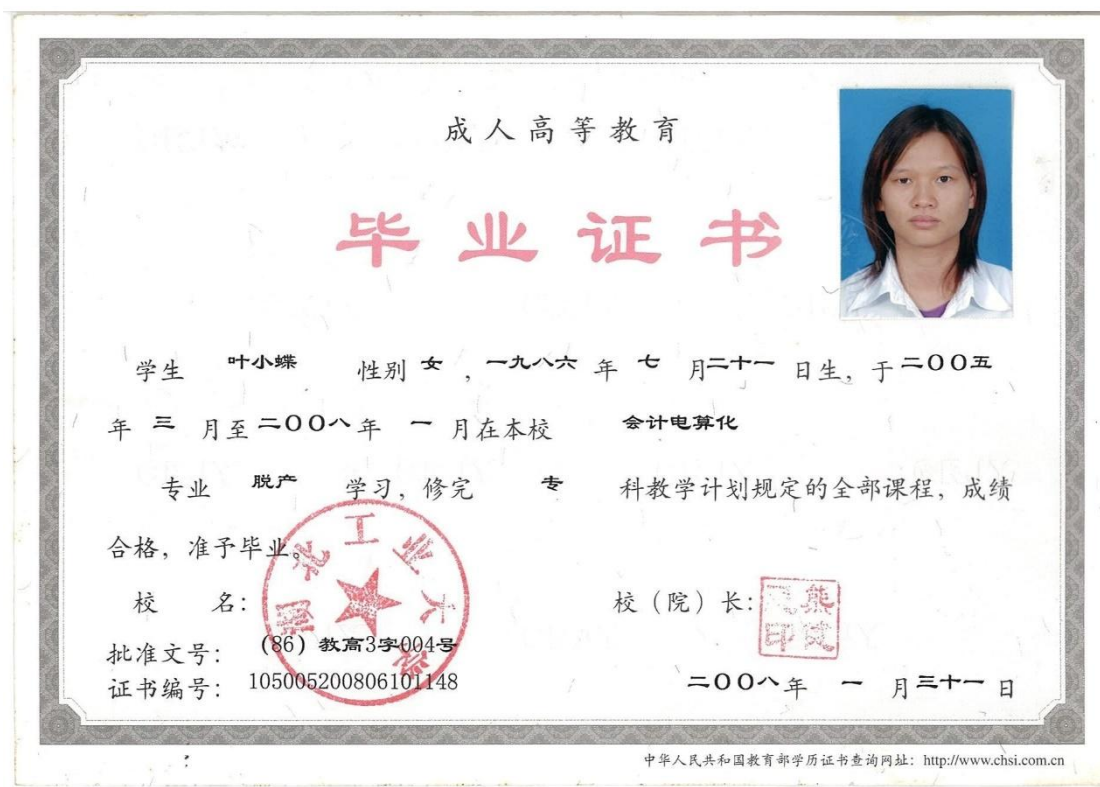 成人高等教育
毕业证书
学生 叶小蝶 性别 女 ,一九八六 年 七 月二十一 日生, 于二〇〇五
年 三 月至二〇〇八年 一 月在本校 会计电算化
专业 脱产 学习, 修完 专 科教学计划规定的全部课程, 成绩
合格, 准予毕业。
湖北工业大学
校 名:
校(院)长:
批准文号: (86)教高3字004号
证书编号: 105005200806101148
二〇〇八年 一 月三十一 日
中华人民共和国教育部学历证书查询网址: http://www.chsi.com.cn